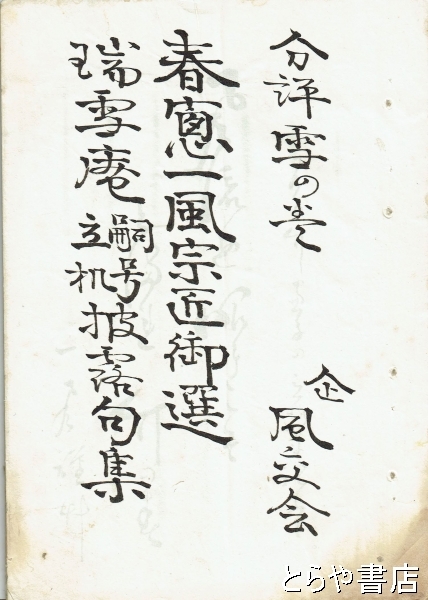 分評雪の巻
企 風交会
春窓一風宗匠御選
瑞雪庵嗣号立机披露句集
とらや書店